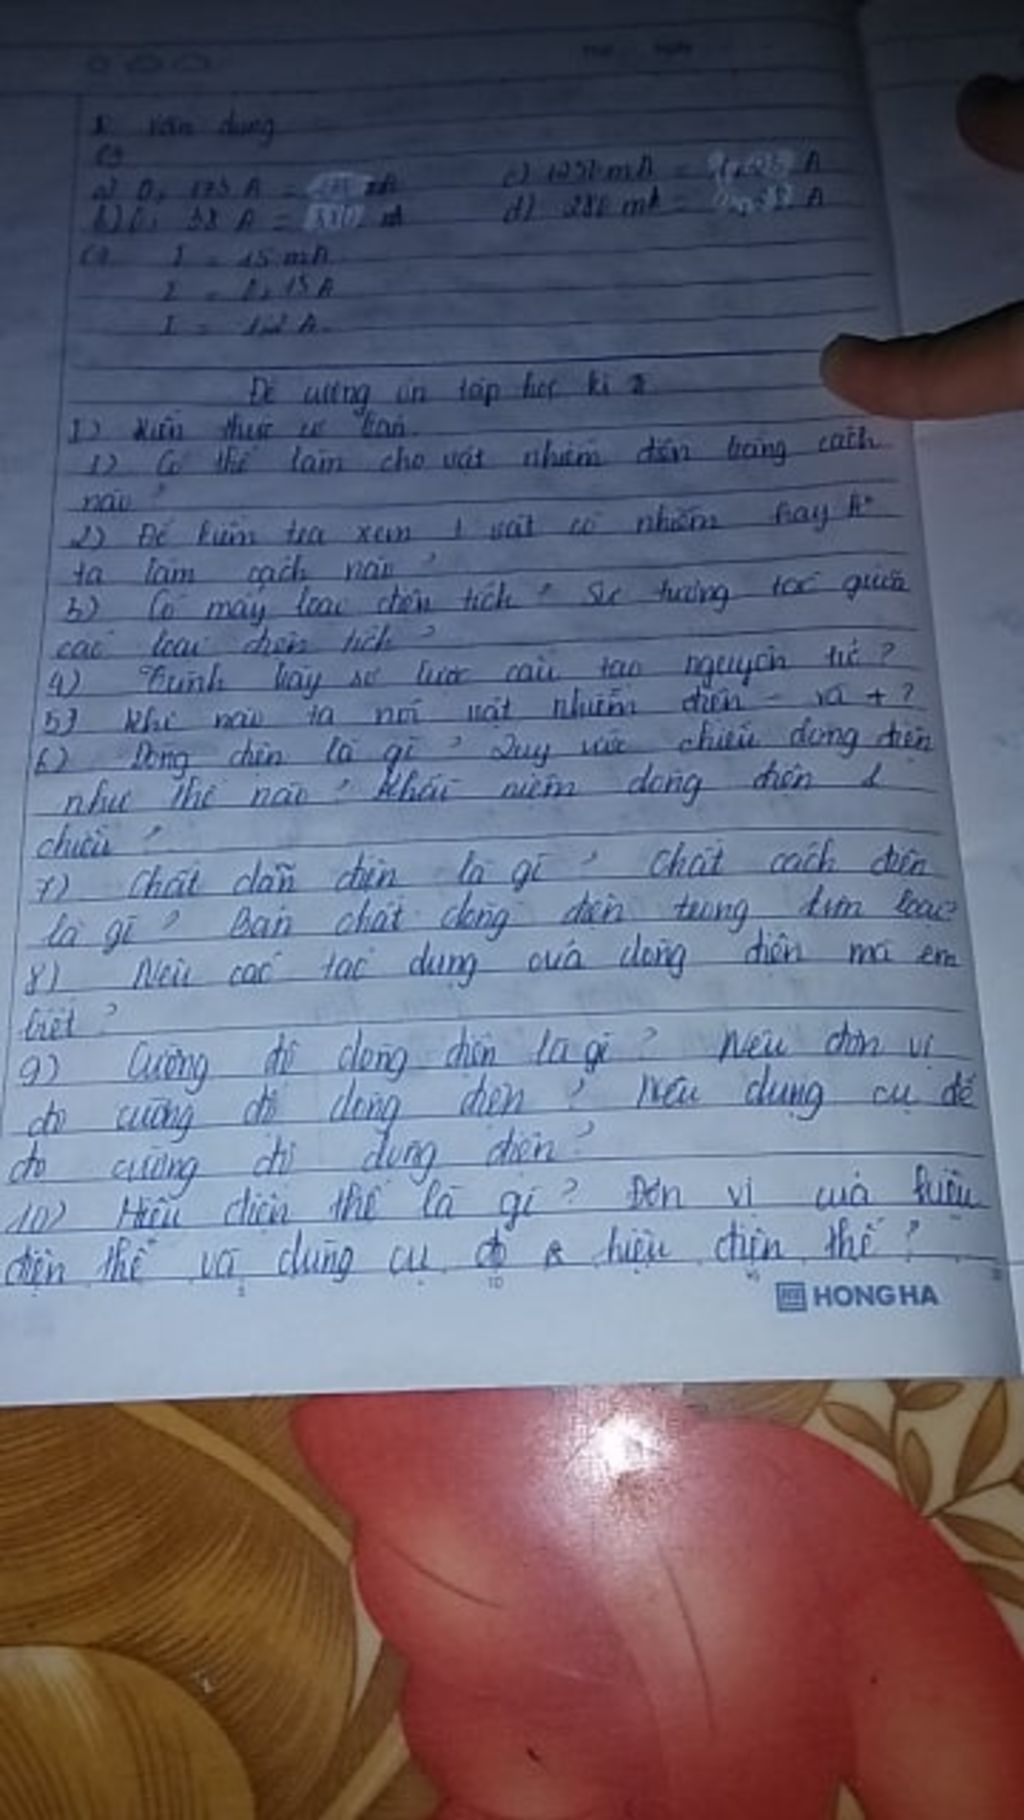 Vận dụng
C3
a) 0,175 A = 175 mA c) 1250 mA = 1,25 A
b) 0,38 A = 380 mA d) 280 mA = 0,28 A
I = 15 mA
I = 0,15 A
I = 1,2 A
Đề cương ôn tập học kì 2
I) Kiến thức cơ bản.
1) Có thể làm cho vật nhiễm điện bằng cách
nào?
2) Để kiểm tra xem 1 vật có nhiễm hay ko
ta làm cách nào?
3) Có mấy loại điện tích? Sự tương tác giữa
các loại điện tích?
4) Trình bày sơ lược cấu tạo nguyên tử?
5) Khi nào ta nói vật nhiễm điện - và +?
6) Dòng điện là gì? Quy ước chiều dòng điện
như thế nào? Khái niệm dòng điện 1
chiều?
7) Chất dẫn điện là gì? Chất cách điện
là gì? Bản chất dòng điện trong kim loại?
8) Nêu các tác dụng của dòng điện mà em
biết?
9) Cường độ dòng điện là gì? Nêu đơn vị
đo cường độ dòng điện? Nêu dụng cụ để
đo cường độ dòng điện?
10) Hiệu điện thế là gì? Đơn vị của hiệu
điện thế và dụng cụ đo hiệu điện thế?
HONG HA